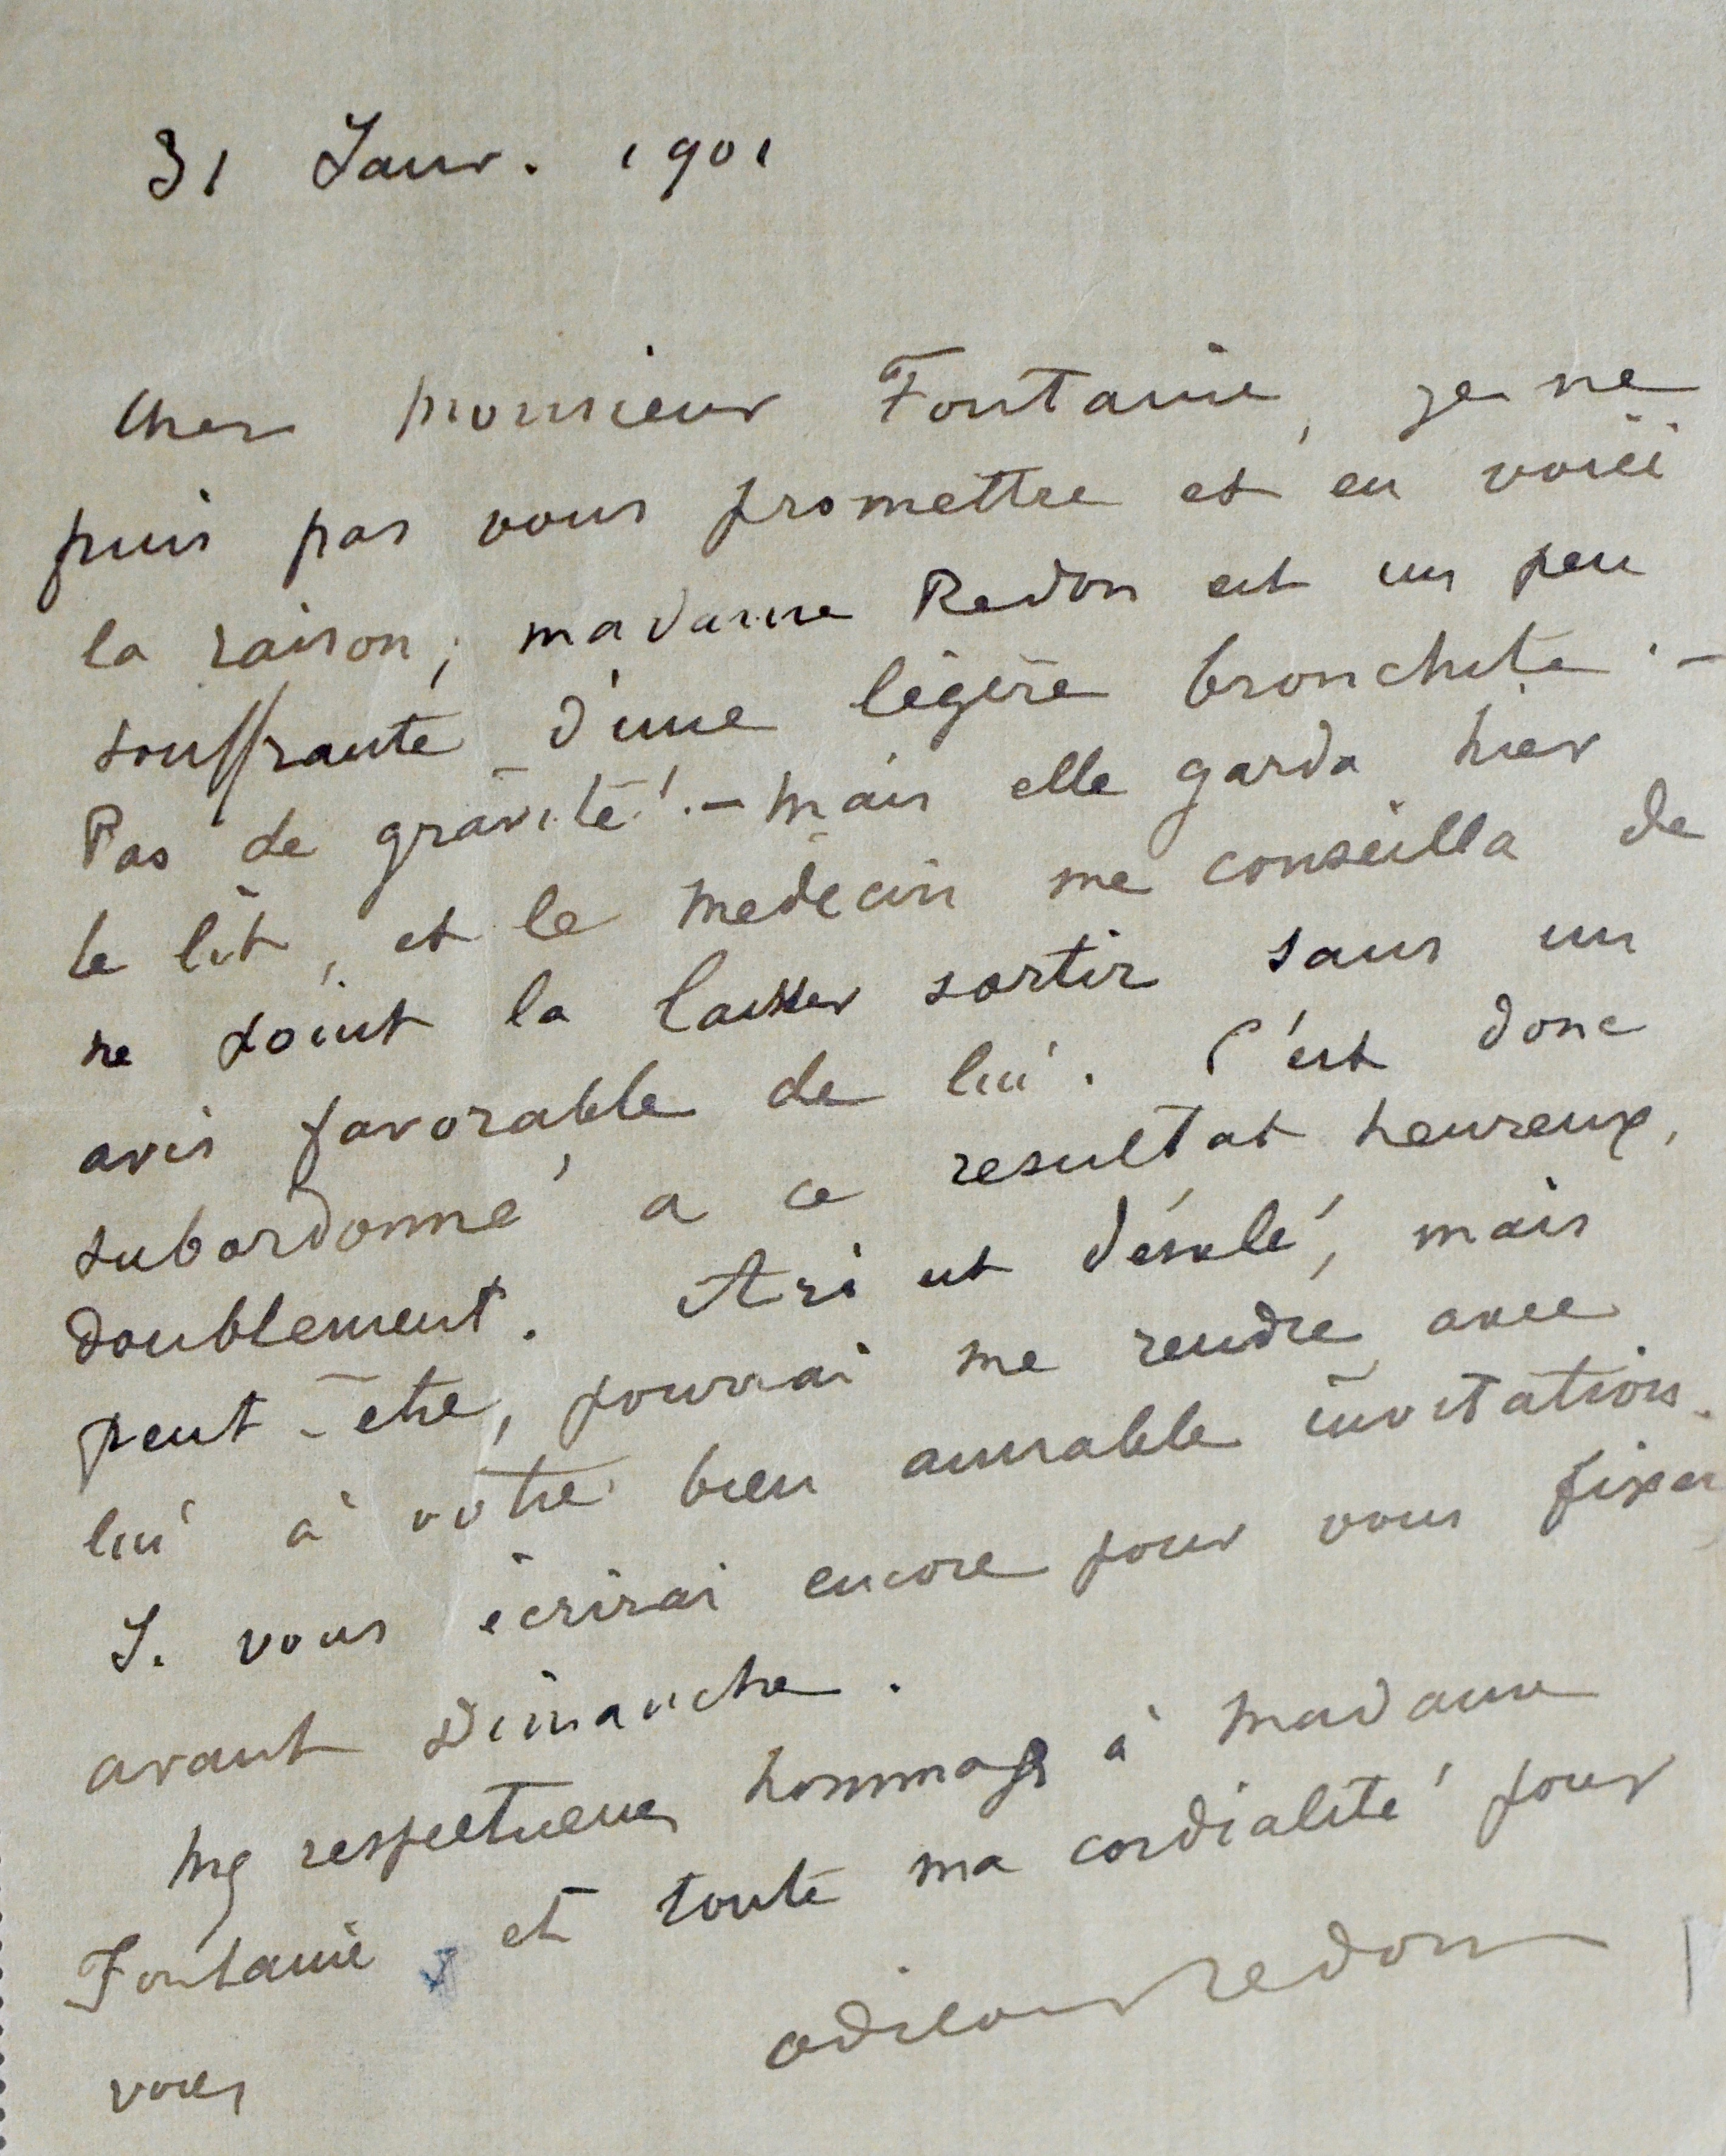 31 Janv. 1901
Cher monsieur Fontaine, je ne
puis pas vous promettre et en voici
la raison; madame Redon est un peu
souffrante d'une légère bronchite. —
Pas de gravité. — mais elle garda hier
le lit, et le médecin me conseilla de
ne point la laisser sortir sans un
avis favorable de lui. C'est donc
subordonné à ce resultat heureux,
doublement. Ari est désolé, mais
peut-être, pourrai me rendre avec
lui à votre bien aimable invitation.
J. vous écrirai encore pour vous fixer
avant Dimanche.
Mes respectueux hommages à Madame
Fontaine, et toute ma cordialité pour
vous
odilon redon